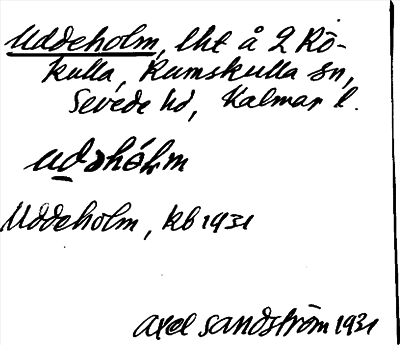 Uddeholm, lht å 2 Rö-
kulla, Rumskulla sn,
Sevede hd, Kalmar l.
udəhòlm
Uddeholm, kb 1931
Axel Sandström 1931